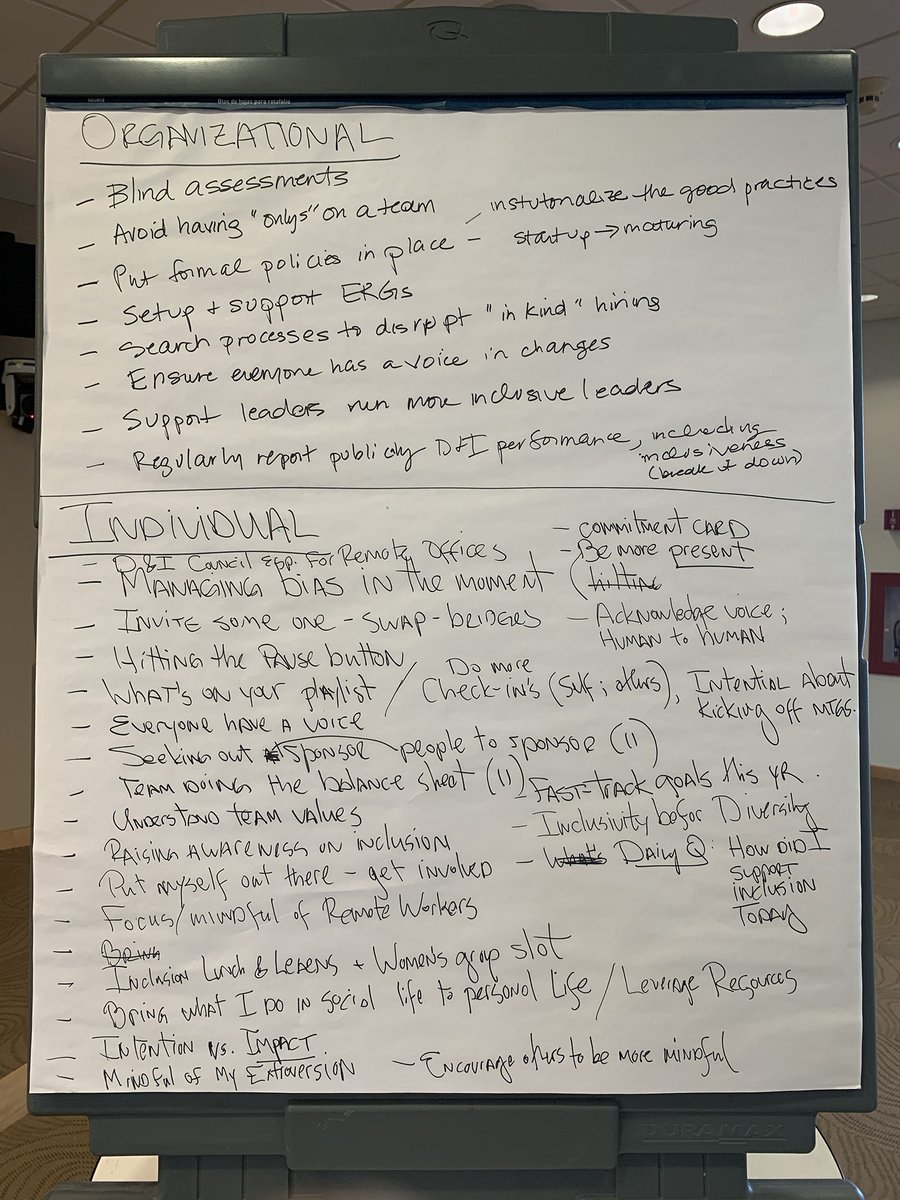 SOURCE
Bloc de hojas para rotafolio
ORGANIZATIONAL
- Blind assessments
- Avoid having "onlys" on a team
- Put formal policies in place - institutonalize the good practices
startup → maturing
- Setup + support ERGs
- Search processes to disrupt "in kind" hiring
- Ensure everyone has a voice in changes
- Support leaders run more inclusive leaders
- Regularly report publicly D+I performance, including
inclusiveness
(break it down)
INDIVIDUAL
- D&I Council Opp. For Remote Offices
- MANAGING BIAS IN the moment
- INVITE SOME ONE - SWAP - BRIDGES
- Hitting the PAUSE button
- WHAT'S ON your playlist / Do more
Check-in's (Self; others), INTENTIAL About
kicking off MTGS.
- EVERYONE HAVE A VOICE
- Seeking out SPONSOR people to sponsor (11)
- TEAM DOING the balance sheet (11)
- UNDERSTAND TEAM VALUES
- RAISING AWARENESS ON inclusion
- Put myself out there - get involved
- Focus/mindful of Remote Workers
- Bring
Inclusion Lunch & LEARNS + Womens group slot
- Bring what I do in social life to personal Life / Leverage Resources
- INTENTION vs. IMPACT
- Mindful of My Extroversion
- Encourage others to be more mindful
- COMMITMENT CARD
- Be more present
(hitting
- Acknowledge voice;
HUMAN to HUMAN
- FAST-TRACK goals this YR.
- Inclusivity befor Diversity
- What's Daily Q: HOW DID I
SUPPORT
INCLUSION
TODAY
DURAMAX